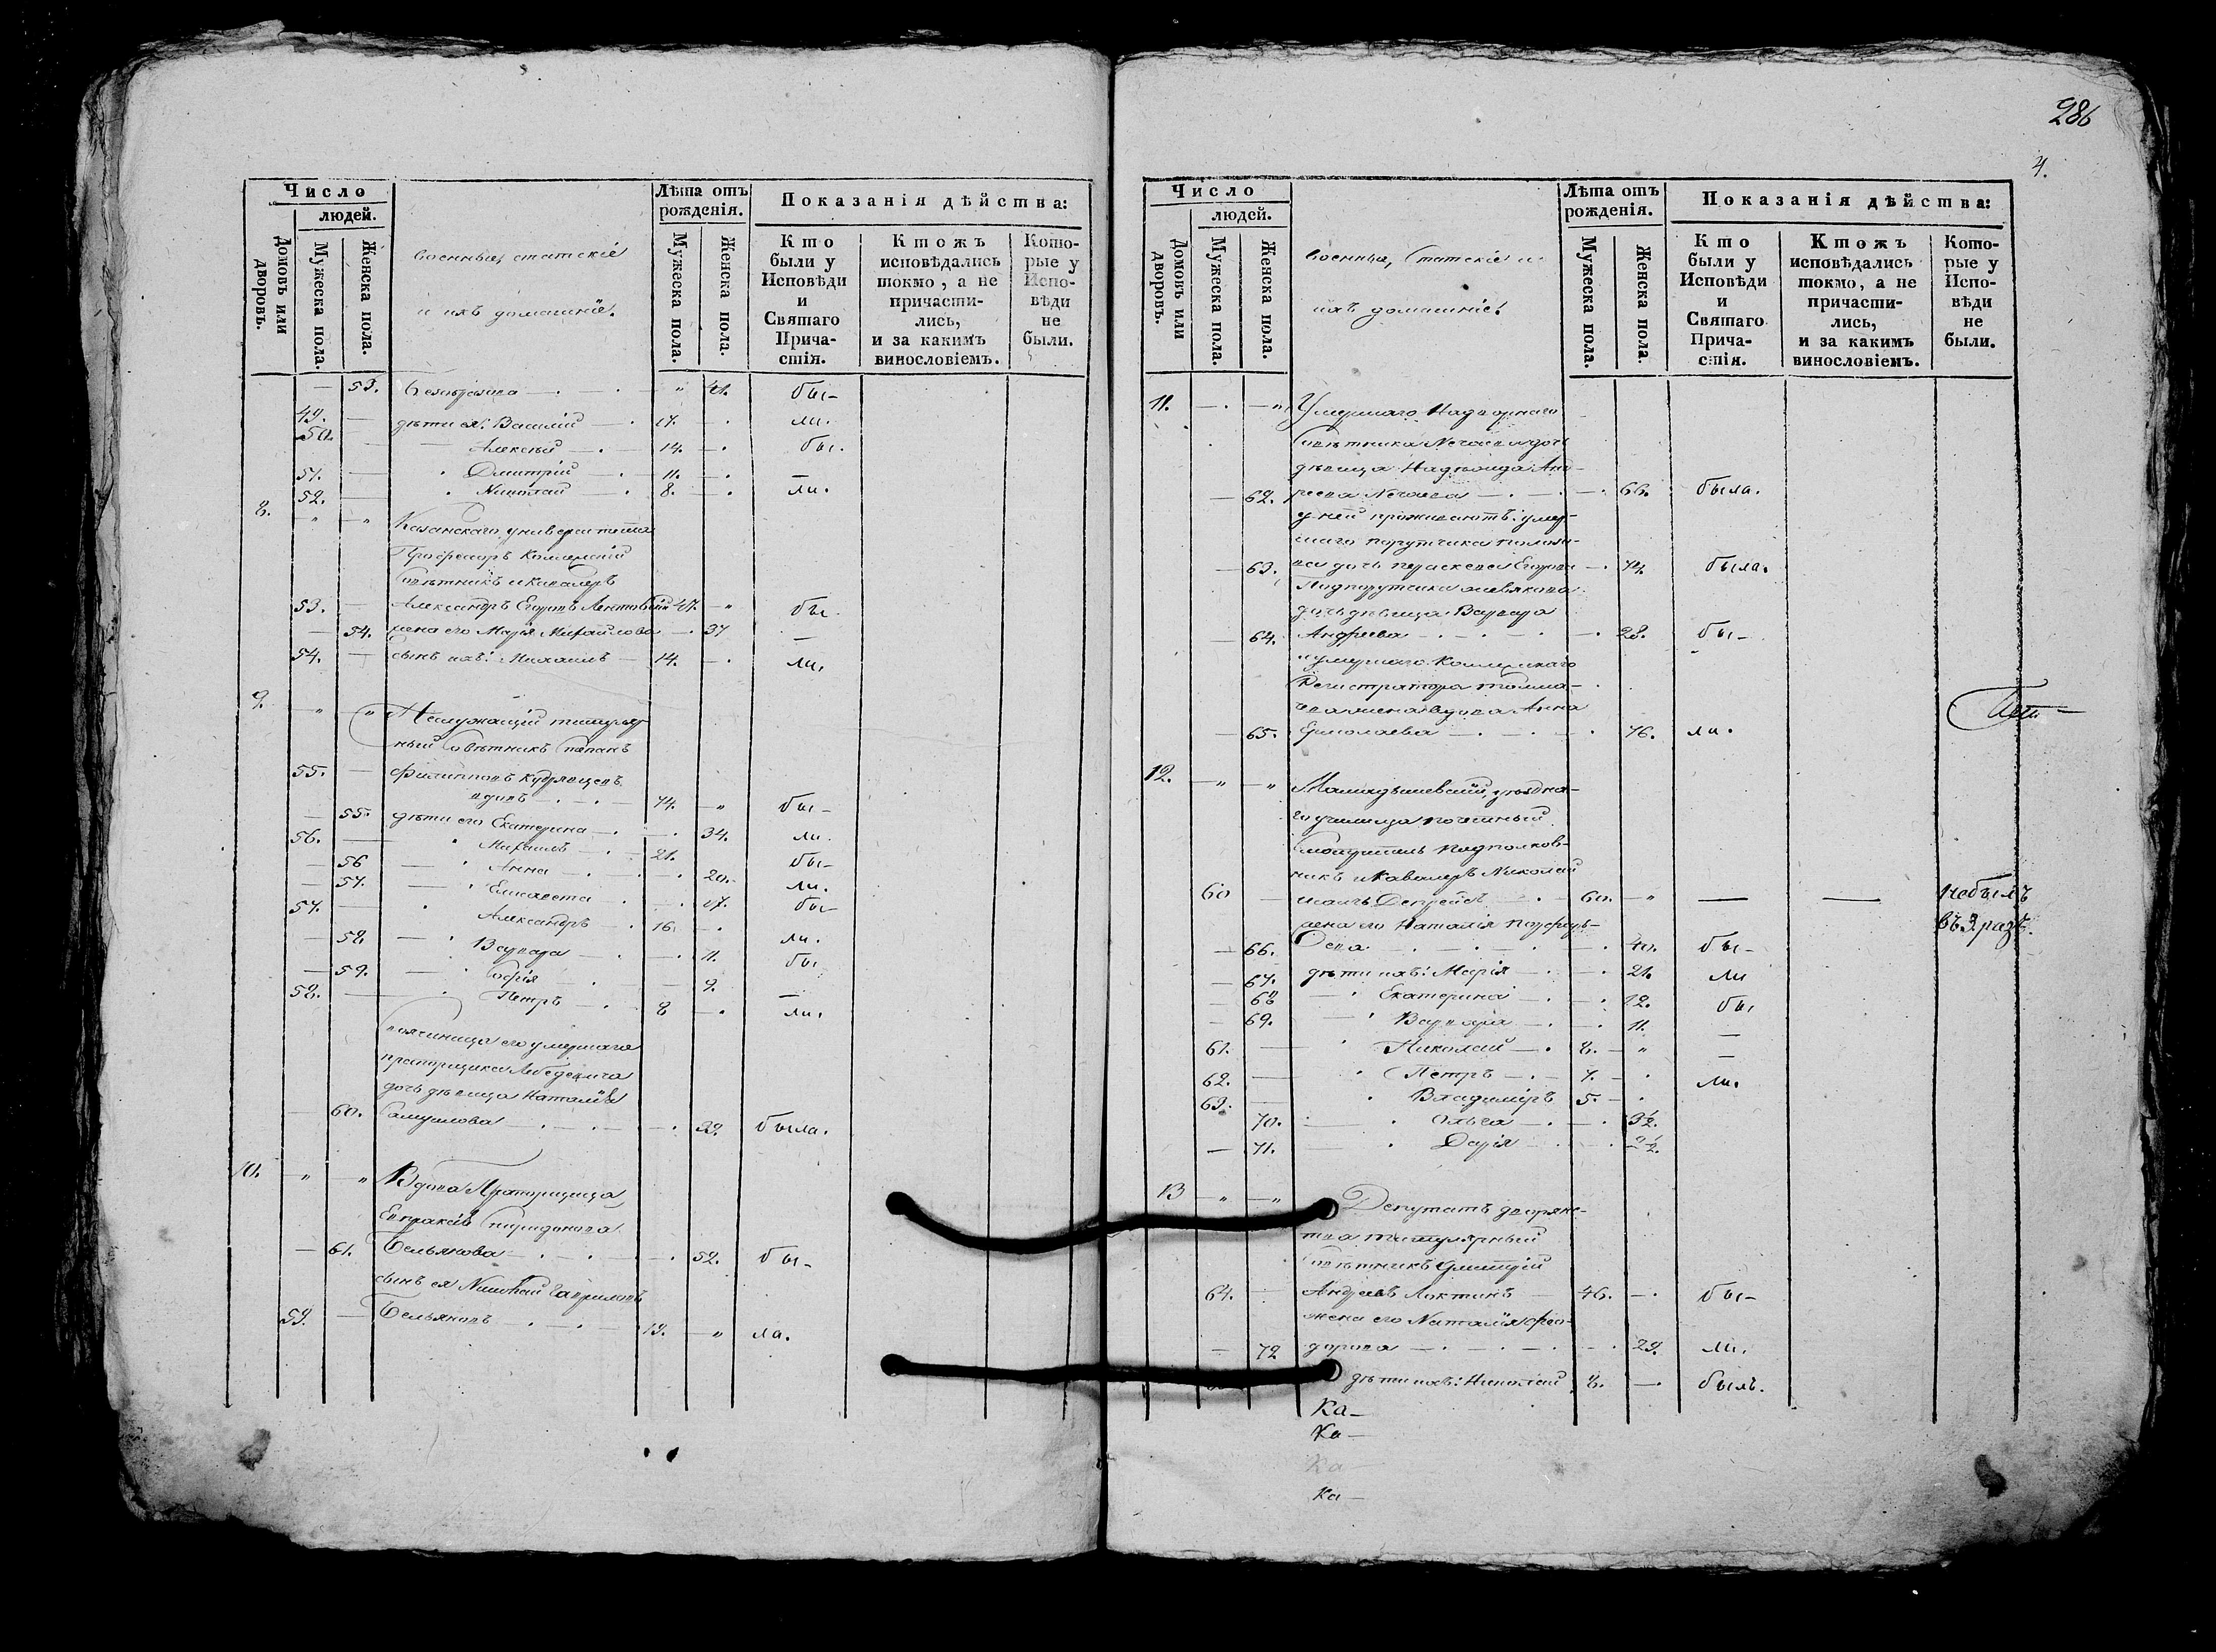 286
4.
Число
людей.
Домовъ или дворовъ.
Мужеска пола.
Женска пола.
Военныя, статскіе
и ихъ домашніе.
Лѣта отъ рожденія.
Мужеска пола.
Женска пола.
Показанія дѣйства:
Кто были у Исповѣди и Святаго Прича-стія.
Ктожъ исповѣдались токмо, а не причасти-лись, и за какимъ винословіемъ.
Кото-рые у Испо-вѣди не были.
— 53. — " 41. бы-
49. — дѣти ея: Василій — 17. — ли.
50. — Алексѣй — 14. — бы.
51. — Дмитрій — 11. — —
52. — Николай — 8. — ли.
8. " " Казанскаго университета
Професоръ Коллежскій
Совѣтникъ и Кавалеръ
53. — Александръ Егоровъ 47. — " бы
— 54. жена его Марія Михайлова — 37 —
54. — сынъ ихъ: Михаилъ — 14. — ли.
9. " " Неслужащій титуляр
ный Совѣтникъ Степанъ
55. — Филипповъ Кудрявцевъ
вдовъ — 74. — " бы-
— 55. дѣти его Екатерина — 34. ли.
56. — Михаилъ — 21. бы-
— 56 — Анна — 20. ли.
— 57. — Елисавета — 17. бы-
57. — Александръ 16. — ли.
— 58. — Варвара — 11. бы
— 59. — Софія — 9. —
58. — Петръ — 8 — ли.
его умершаго
прапорщика
дочь дѣвица Наталія
— 60. Самуилова — 39. была.
10. " " Вдова Прапорщица
Евпраксія Спиридонова
— 61. Бельянова — 52. бы-
сынъ ея Николай Гавриловъ
59. — Бельяновъ — 19. — " ла.
Число
людей.
Домовъ или дворовъ.
Мужеска пола.
Женска пола.
Военныя, Статскіе и
ихъ домашніе.
Лѣта отъ рожденія.
Мужеска пола.
Женска пола.
Показанія дѣйства:
Кто были у Исповѣди и Святаго Прича-стія.
Ктожъ исповѣдались токмо, а не причасти-лись, и за какимъ винословіемъ.
Кото-рые у Испо-вѣди не были.
11. — — " Умершаго Надворнаго
Совѣтника Нечаева дочь
дѣвица Надежда Анд-
— 62. реева Нечаева — 66. была.
у ней проживаютъ: умер-
шаго порутчика
— 63. ва дочь Параскева Егорова — 74. была.
Подпорутчика
дочь дѣвица Варвара
— 64. Андреева — 28. бы-
и умершаго Коллежскаго
Регистратора Толма-
чева жена вдова Анна
— 65. Ермолаева — 76. ли.
12. — " — " Мамадышевскій, уѣздна-
го училища почетный
Смотритель Подполков-
никъ и Кавалеръ Николай
60 — 60. — " — — Небылъ
въ 3 разъ.
жена его Наталія Порфирь-
— 66. ева — 40. бы-
— 67. дѣти ихъ: Марія — 21. ли
— 68 — Екатерина — 12. бы
— 69. — Варвара — 11. —
61. — Николай — 8. — " —
62. — Петръ — 7. — ли.
63. — Владиміръ 5. —
— 70. — Ольга — 3½.
— 71. — Дарія — 2½.
13 — " — " Депутатъ дворянс-
тва титулярный
Совѣтникъ Дмитрій
64. — Андреевъ Локтинъ — 46. — бы-
жена его Наталія Фео-
— 72 дорова — 29. ли.
дѣти ихъ: Николай 8. — былъ.
Ка-
Ка-
Ка
Ка-